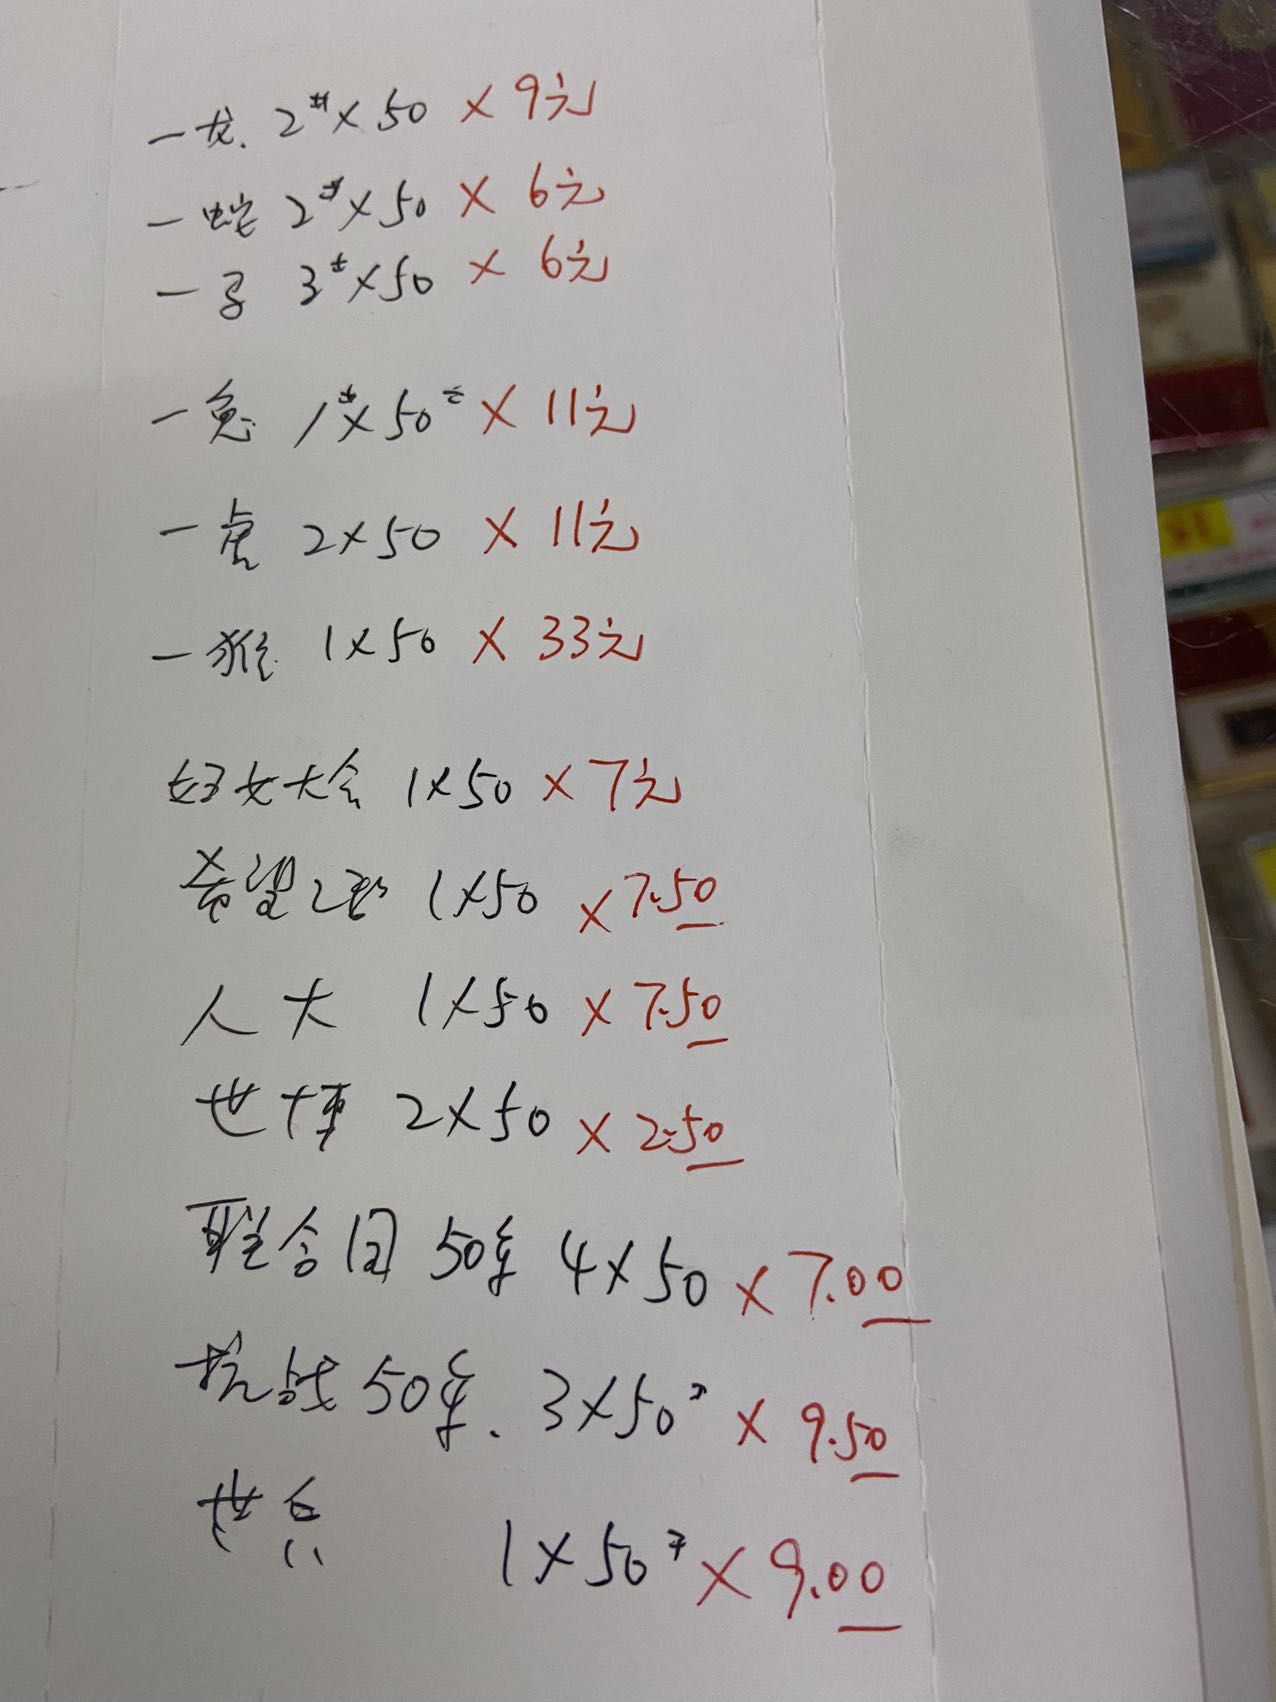 一龙. 2#×50 ×9元
一蛇 2#×50 × 6元
一马 3#×50 × 6元
一兔 1#×50 × 11元
一虎 2×50 × 11元
一猴 1×50 × 33元
妇女大会 1×50 ×7元
希望工程 1×50 ×7.50
人大 1×50 ×7.50
世博 2×50 ×2.50
联合国 50年 4×50 ×7.00
抗战50年. 3×50 × 9.50
世乒 1×50 ×9.00